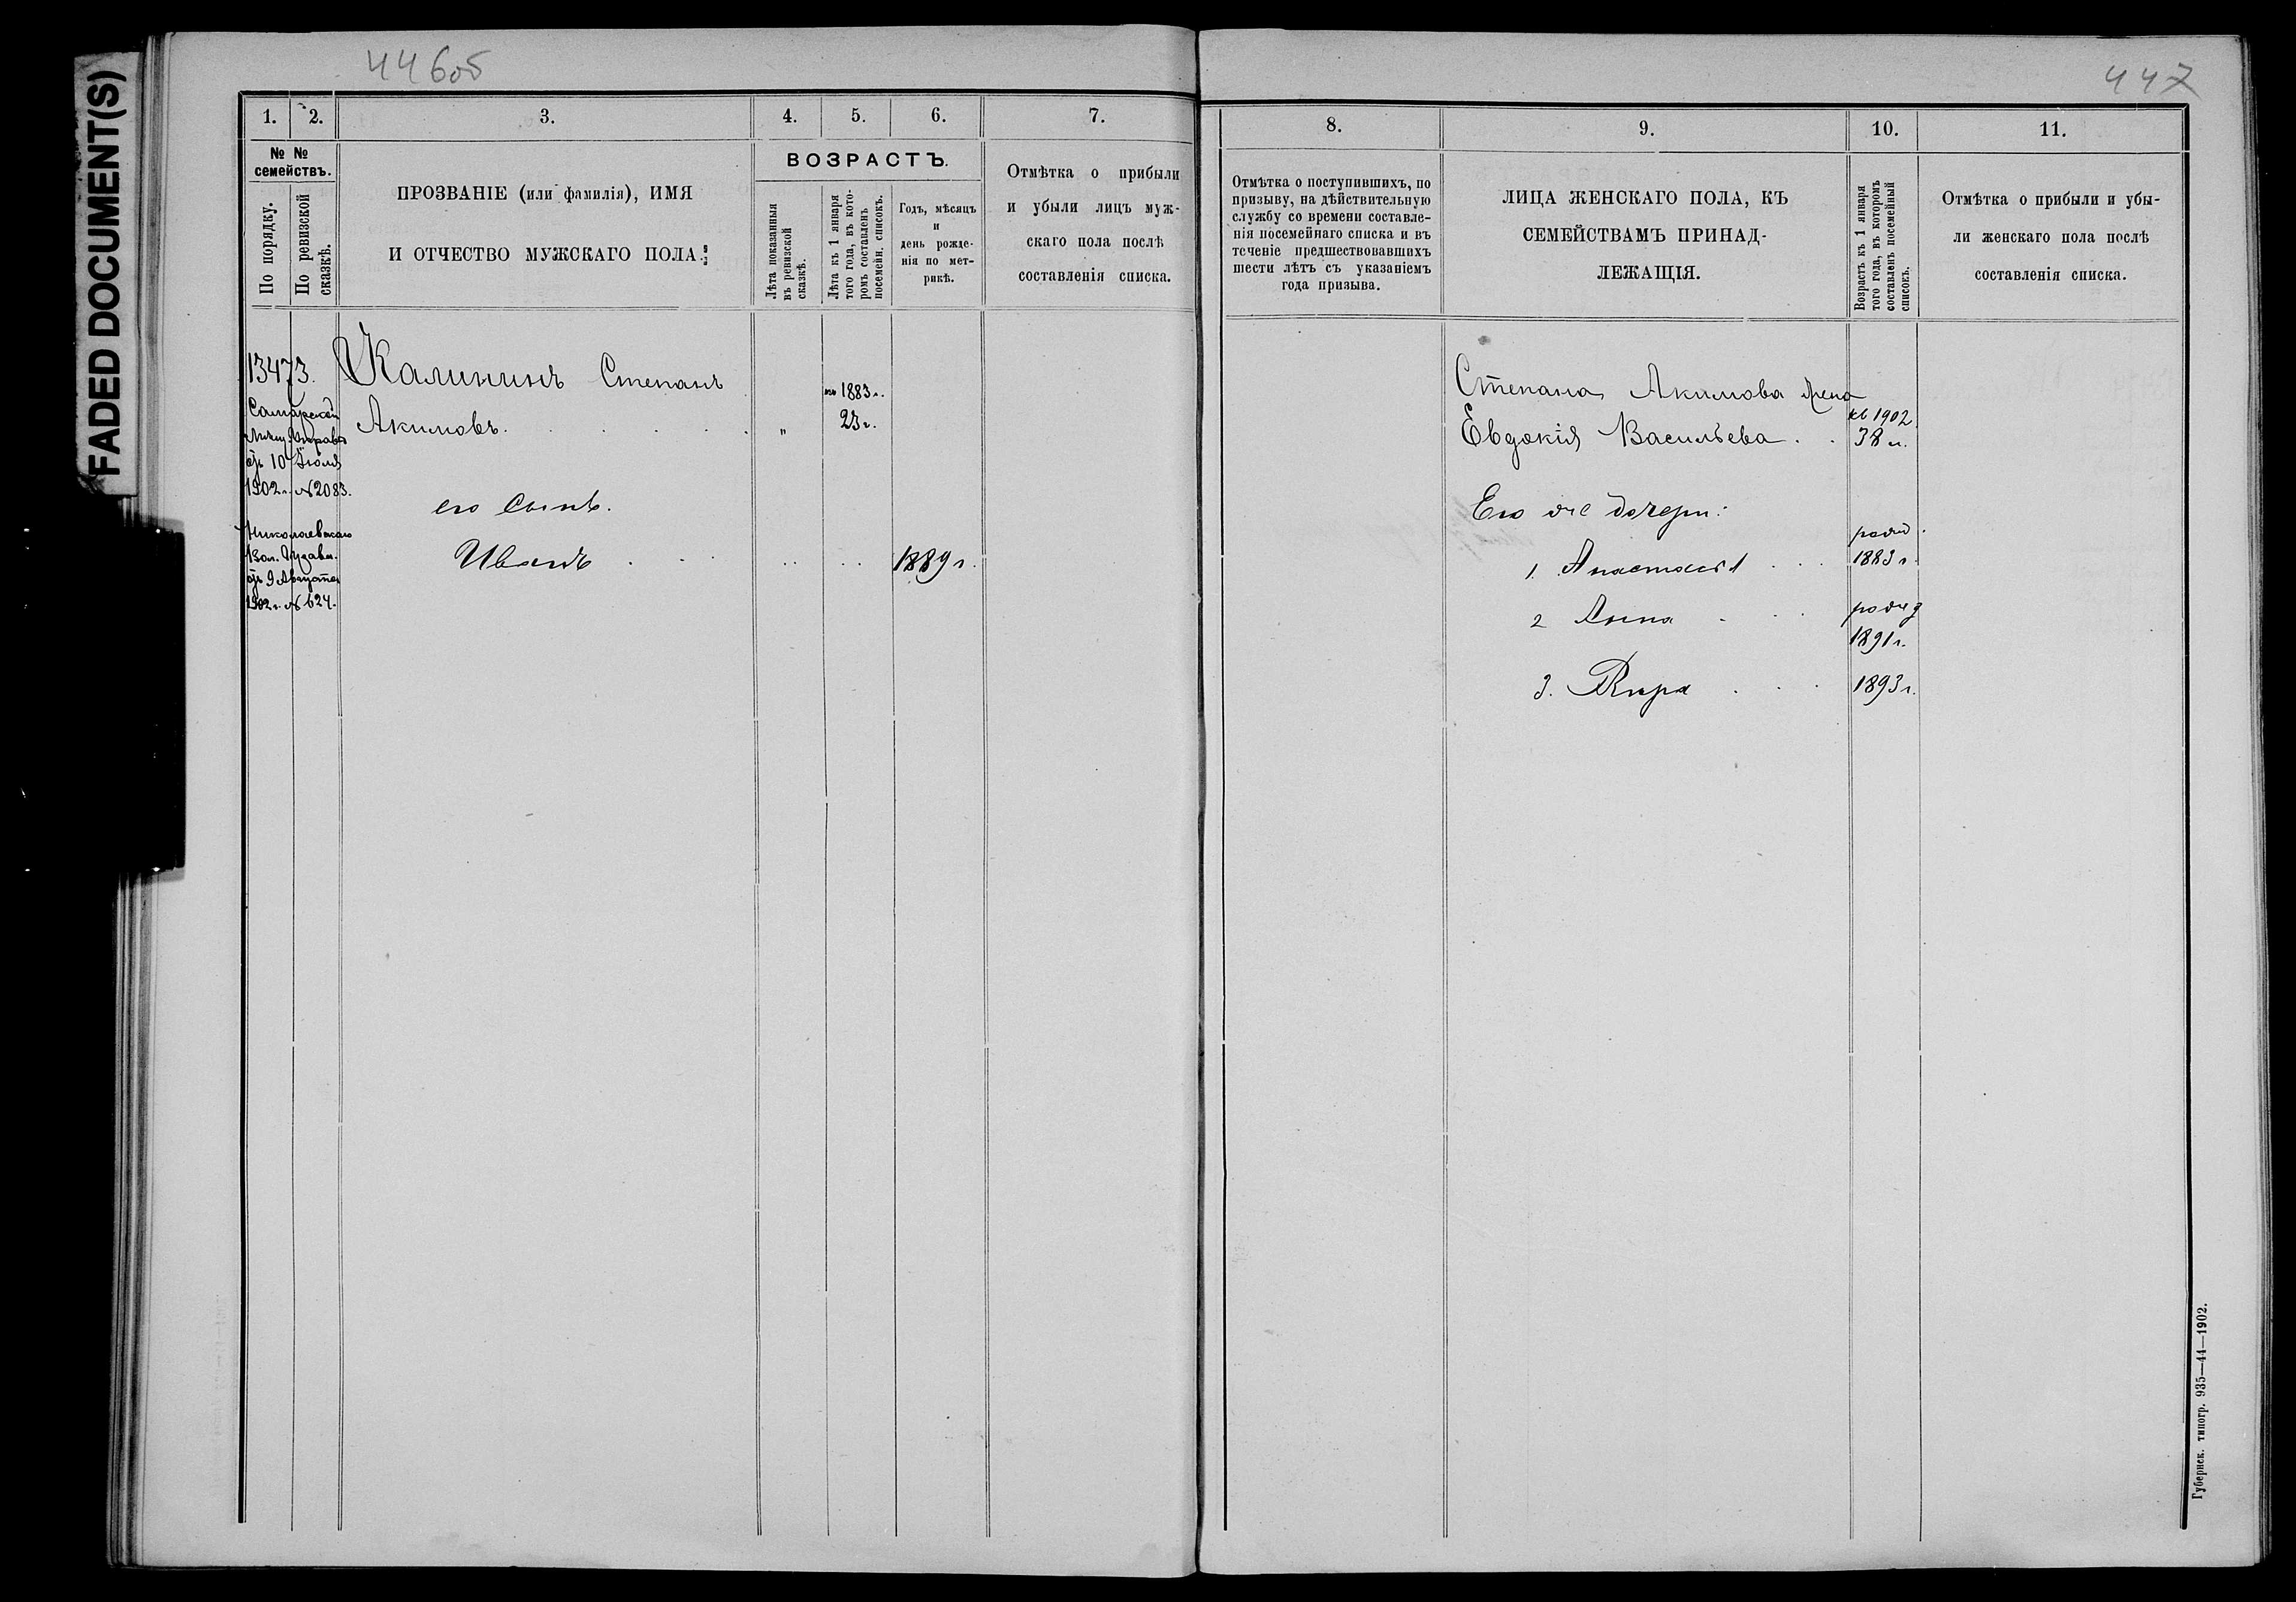 FADED DOCUMENT(S)
446об
1. 2. 3. 4. 5. 6. 7.
№ № семействъ.
По порядку.
По ревизской сказкѣ.
ПРОЗВАНІЕ (или фамилія), ИМЯ
И ОТЧЕСТВО МУЖСКАГО ПОЛА.
ВОЗРАСТЪ.
Лѣта показанныя
въ ревизской
сказкѣ.
Лѣта къ 1 января
того года, въ кото-
ромъ составленъ
посемейн. списокъ.
Годъ, мѣсяцъ
и
день рожде-
нія по мет-
рикѣ.
Отмѣтка о прибыли
и убыли лицъ муж-
скаго пола послѣ
составленія списка.
13473.
Самарской
Мѣщ. Управы
отъ 10 Іюля
1902 г. № 2083.
Николаевскаго
Вол. Правл.
отъ 9 Августа
1902 г. № 624.
Калининъ Степанъ
Акимовъ. . . . . . „
въ 1883 г.
23 г.
его сынъ.
Иванъ . . .. .. 1889 г.
447
8. 9. 10. 11.
Отмѣтка о поступившихъ, по
призыву, на дѣйствительную
службу со времени составле-
нія посемейнаго списка и въ
теченіе предшествовавшихъ
шести лѣтъ съ указаніемъ
года призыва.
ЛИЦА ЖЕНСКАГО ПОЛА, КЪ
СЕМЕЙСТВАМЪ ПРИНАД-
ЛЕЖАЩІЯ.
Возрастъ къ 1 января
того года, въ которомъ
составленъ посемейный
списокъ.
Отмѣтка о прибыли и убы-
ли женскаго пола послѣ
составленія списка.
Степана Акимова жена
въ 1902
Евдокія Васильева . . 38 л.
Его же дочери:
рожд.
1. Анастасія . . . 1883 г.
2 Анна . . . рожд
1891 г.
3. Вѣра . . . 1893 г.
Губернск. типогр. 935—44—1902.